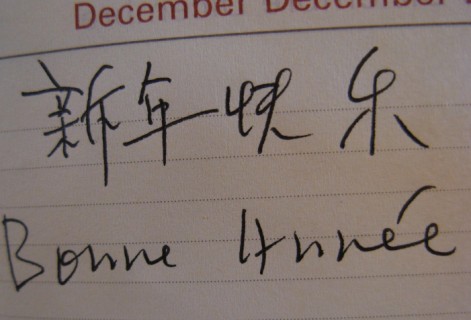 December December
新年快乐
Bonne Année